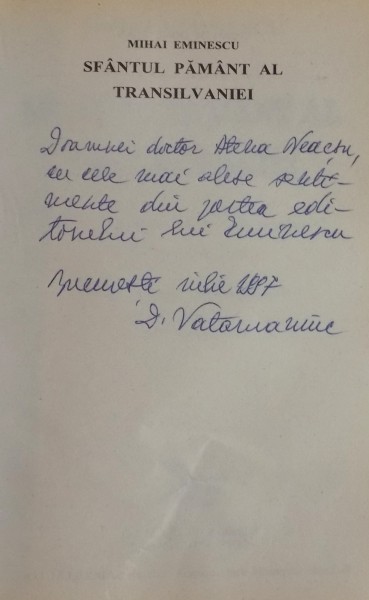 MIHAI EMINESCU
SFÂNTUL PĂMÂNT AL
TRANSILVANIEI
Doamnei doctor Neacșu,
cu cele mai alese senti-
mente din partea edi-
torului lui Eminescu
iulie 1997
D. Vatamaniuc